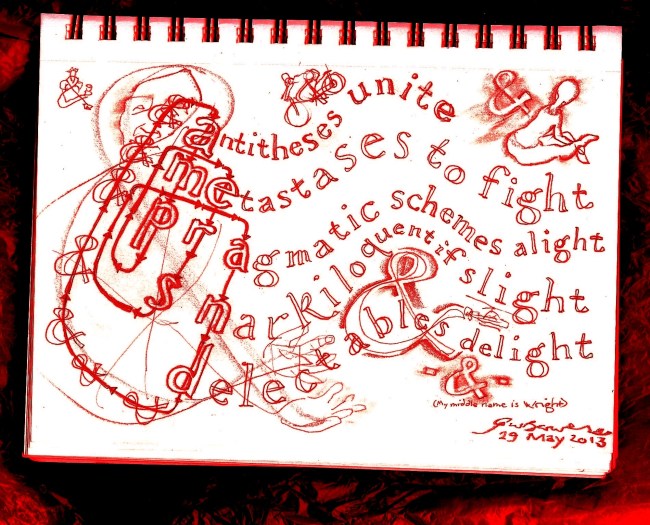 &
antitheses unite
metastases to fight
pragmatic schemes alight
snarkiloquent if slight
&
delectables delight
&
(My middle name is Wright)
29 May 2013